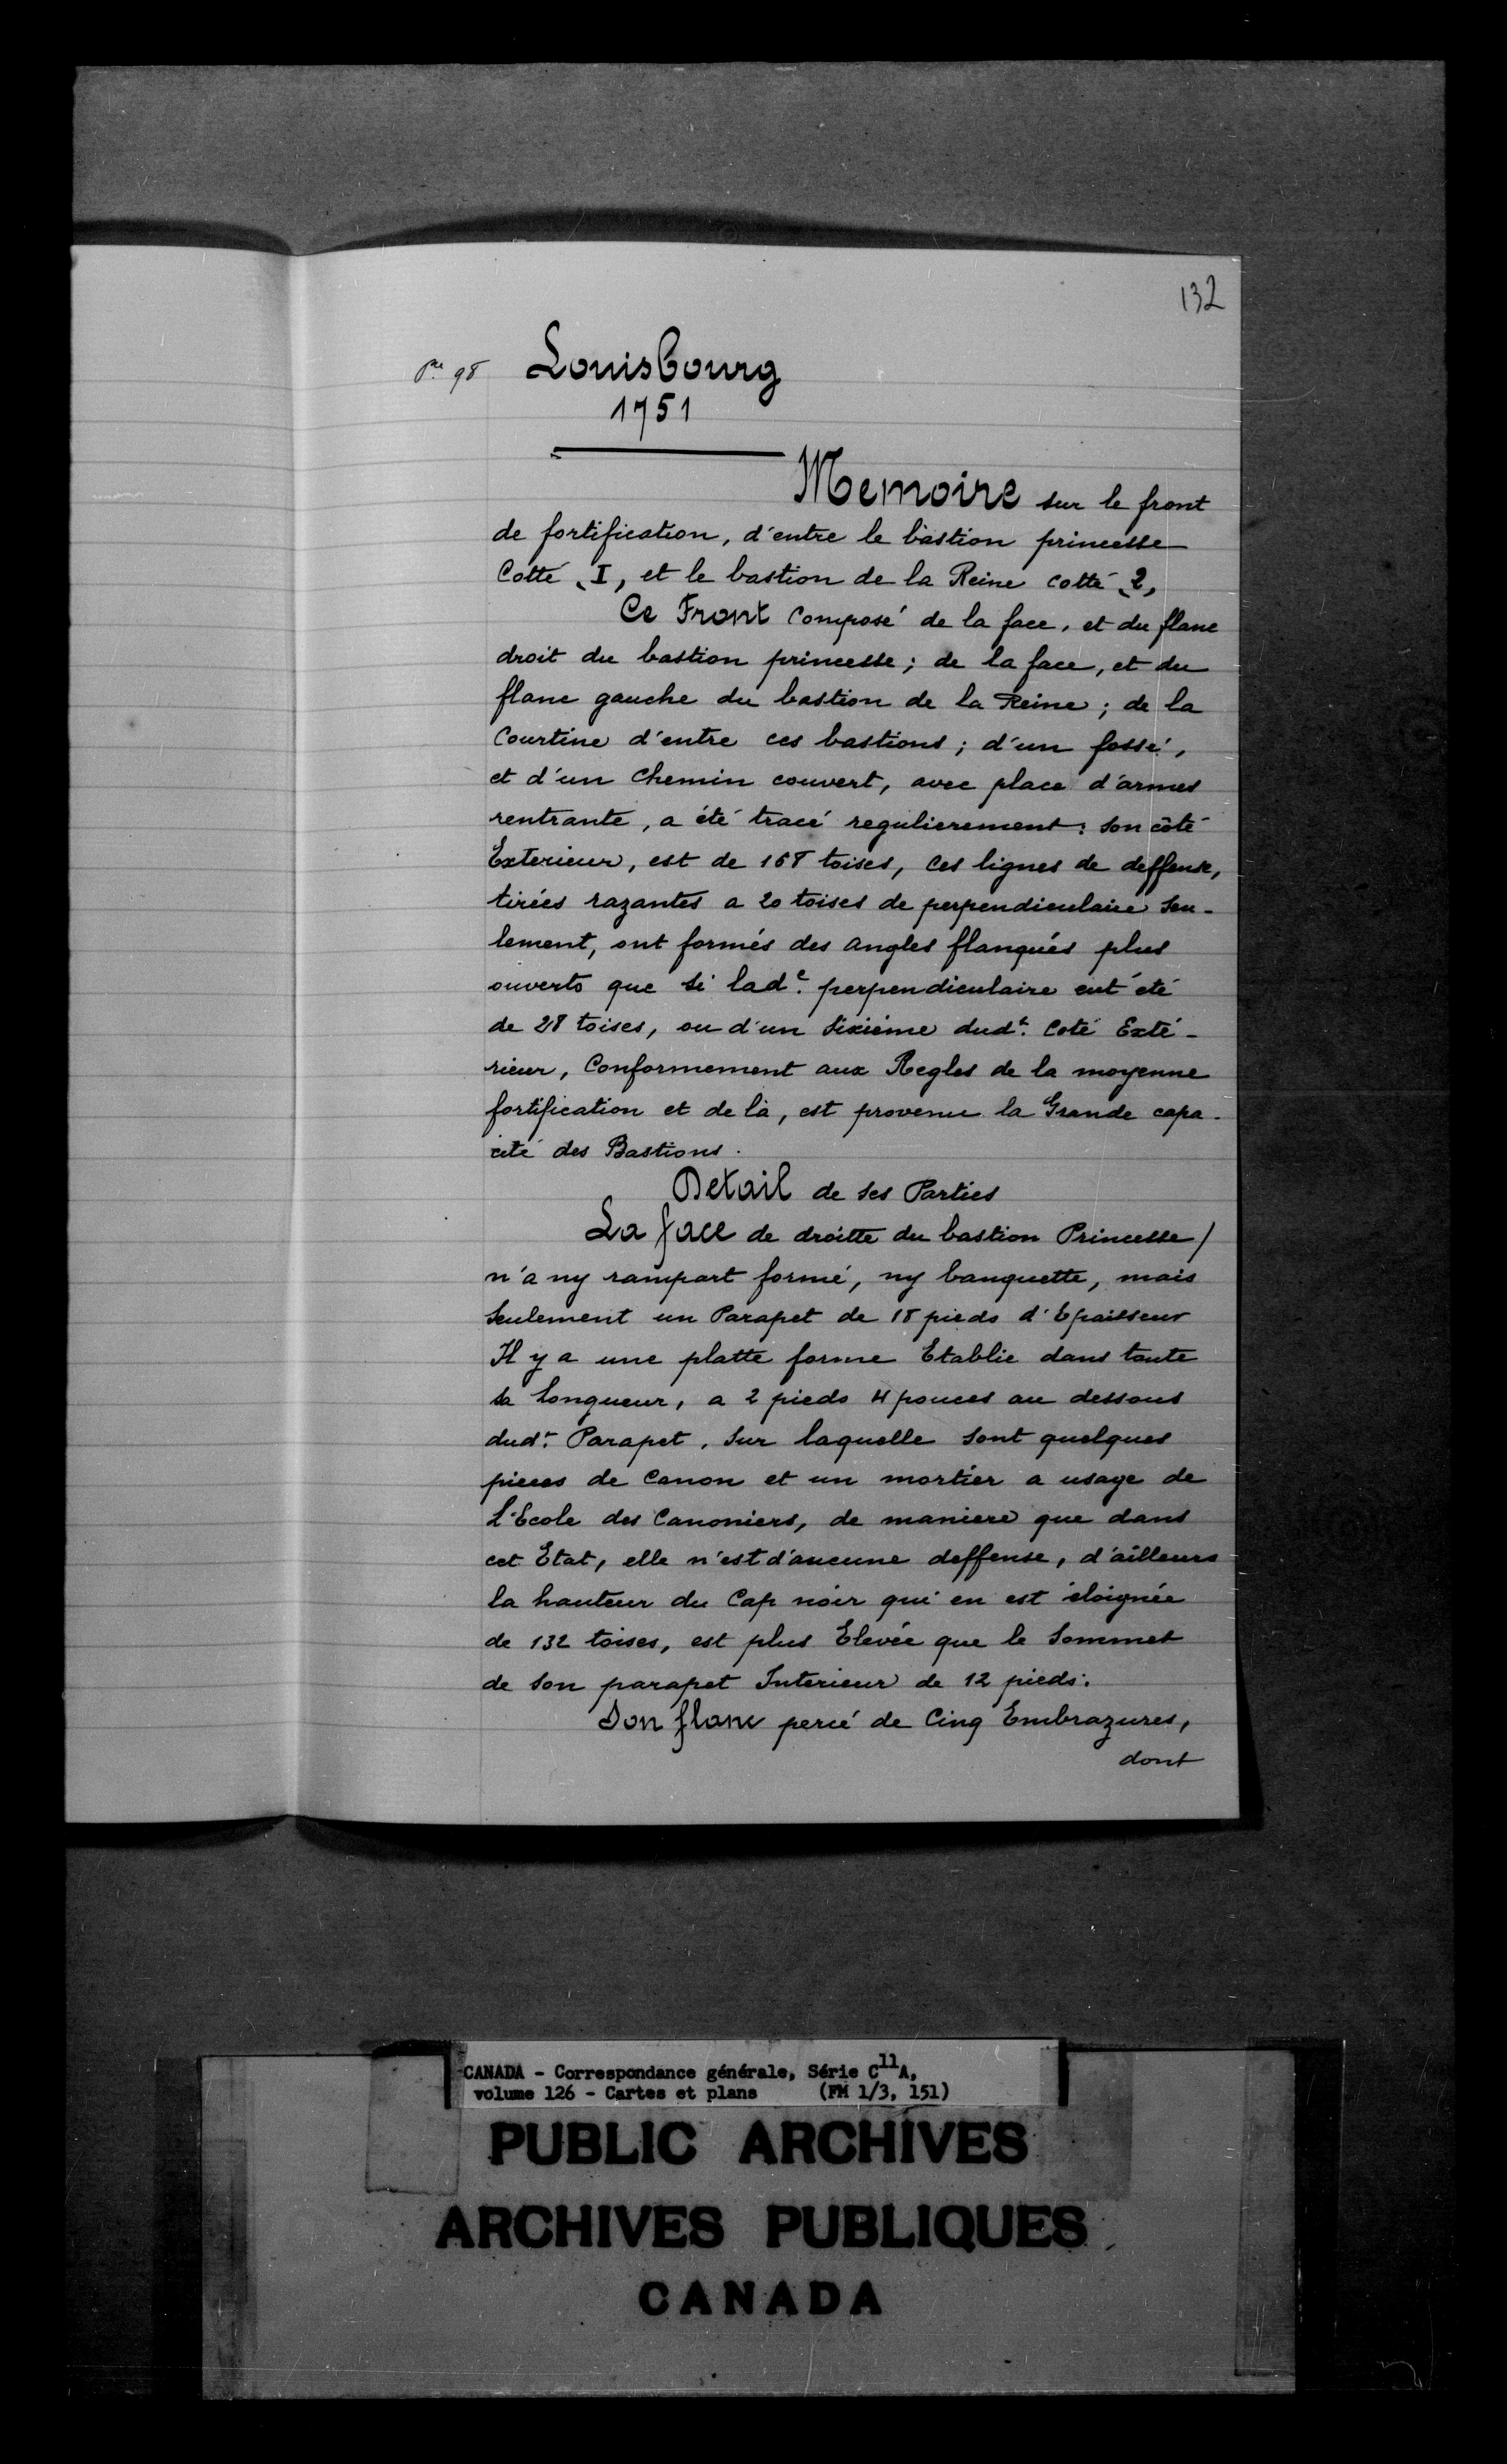 132
Pce 98
Louisbourg
1751
Memoire sur le front
de fortification, d'entre le bastion princesse
Cotté, I, et le bastion de la Reine cotté, 2,
Ce Front composé de la face, et du flanc
droit du bastion princesse; de la face, et du
flanc gauche du bastion de la Reine; de la
Courtine d'entre ces bastions; d'un fossé,
et d'un Chemin couvert, avec place d'armes
rentrante, a été tracé regulierement: son côté
Exterieur, est de 168 toises, ces lignes de deffense,
tirées razantes a 20 toises de perpendiculaire seu-
lement, ont formés des angles flanqués plus
ouverts que si lade. perpendiculaire eut été
de 28 toises, ou d'un sixiéme dudt. Coté Exté-
rieur, Conformement aux Regles de la moyenne
fortification et de là, est provenu la Grande capa-
cité des Bastions.
Detail de ses Parties
La face de droitte du bastion Princesse/
n'a ny rampart formé, ny banquette, mais
seulement un Parapet de 18 pieds d'Epaisseur
Il y a une platte forme Etablie dans toute
sa longueur, a 2 pieds 4 pouces au dessous
dudt. Parapet, sur laquelle sont quelques
pieces de Canon et un mortier a usage de
L'Ecole des Canoniers, de maniere que dans
cet Etat, elle n'est d'aucune deffense, d'ailleurs
la hauteur du Cap noir qui en est éloignée
de 132 toises, est plus Elevée que le Sommet
de son parapet Interieur de 12 pieds.
Son flanc percé de Cinq Embrazures,
dont
CANADA - Correspondance générale, Série C11A,
volume 126 - Cartes et plans (FM 1/3, 151)
PUBLIC ARCHIVES
ARCHIVES PUBLIQUES
CANADA